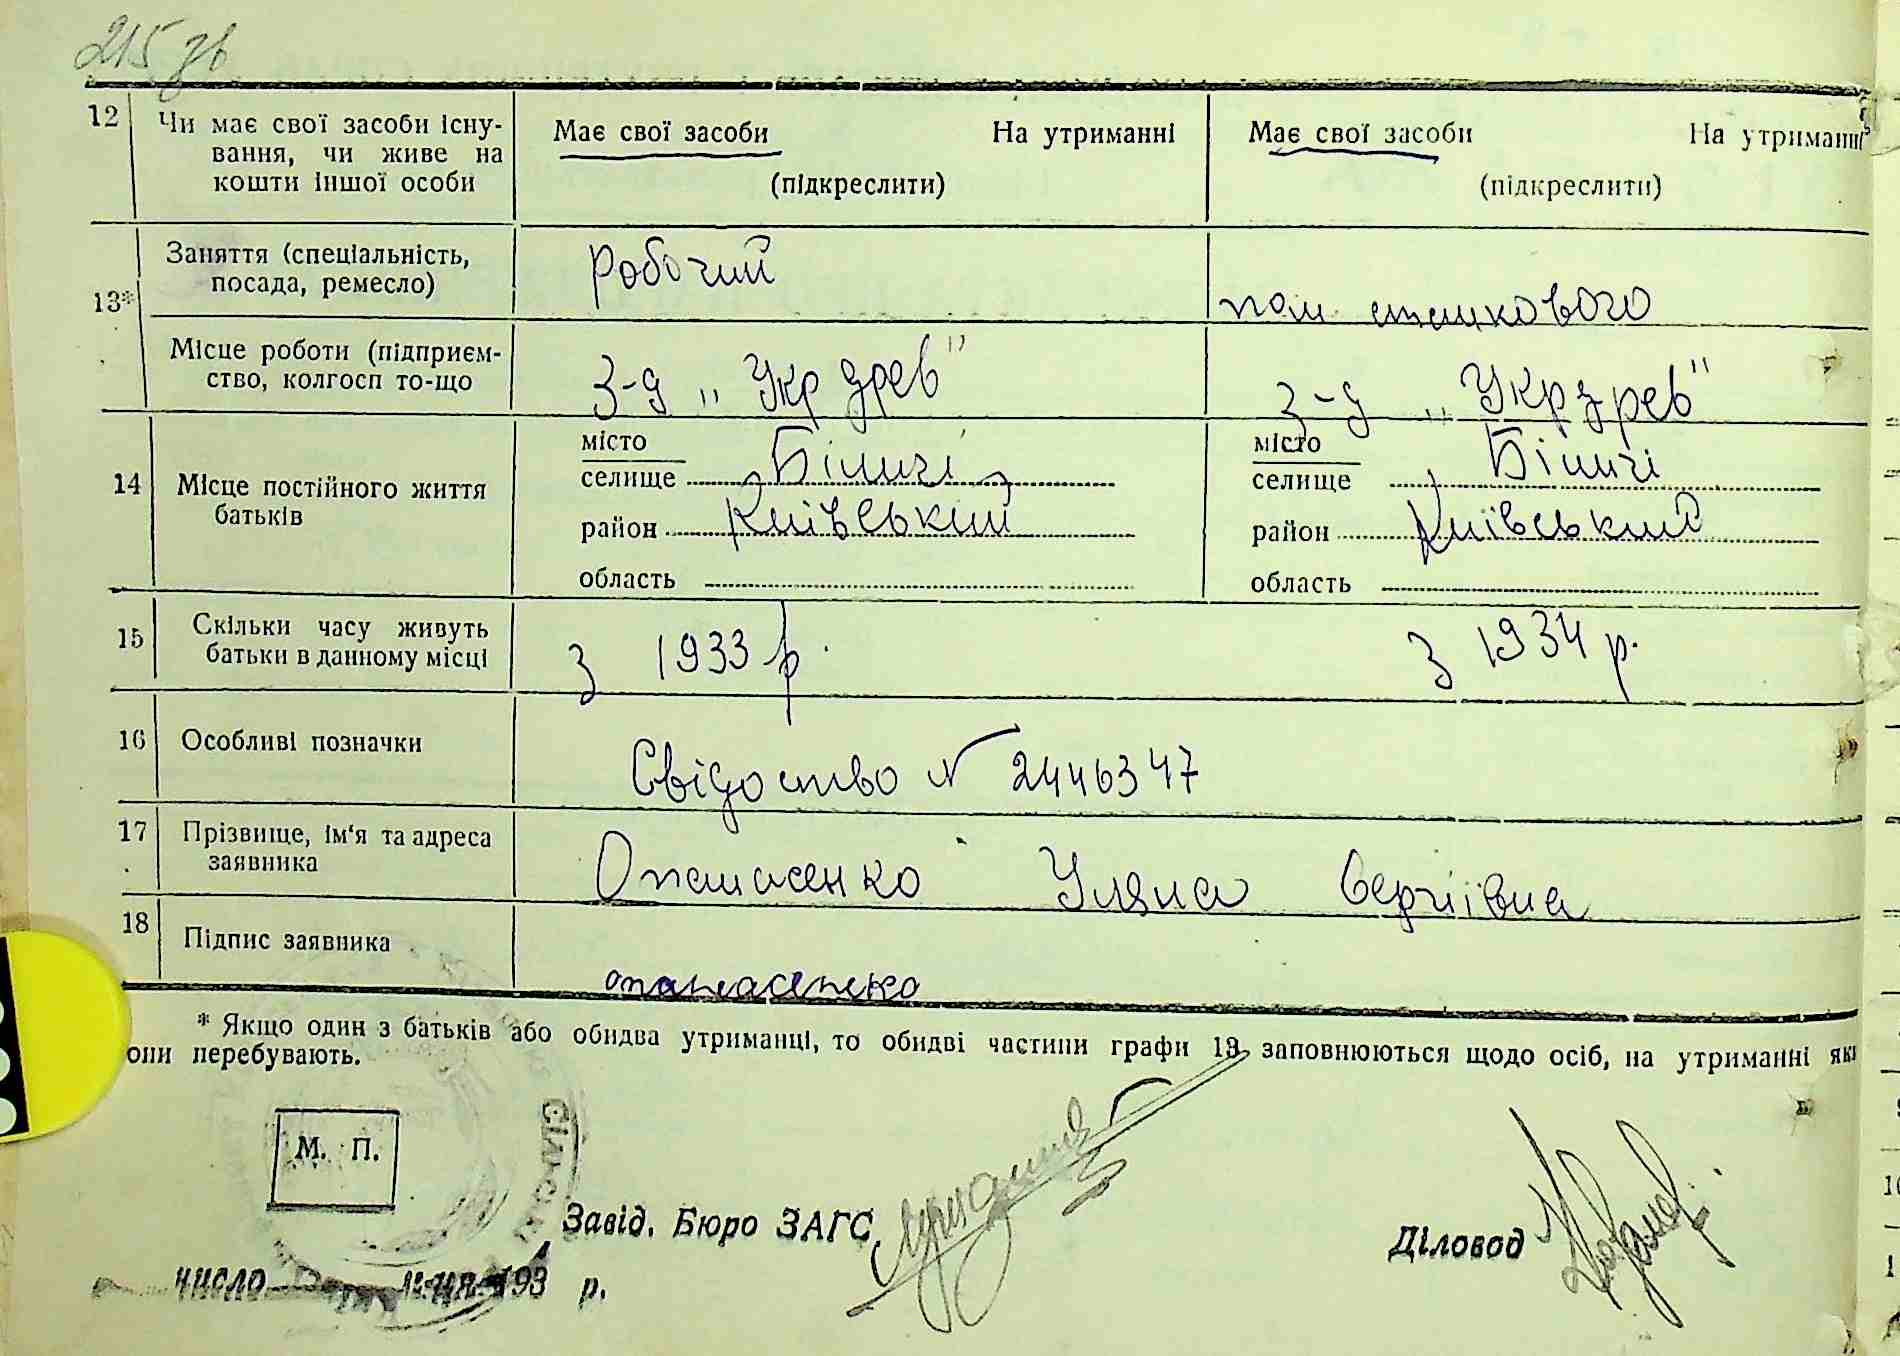 215 зв
12 Чи має свої засоби існу-
вання, чи живе на
кошти іншої особи
Має свої засоби На утриманні
(підкреслити)
Має свої засоби На утриманні
(підкреслити)
13*
Заняття (спеціальність,
посада, ремесло)
Робочий
пом станкового
Місце роботи (підприєм-
ство, колгосп то-що
З-д „Укрдрев"
З-д „Укрдрев"
14 Місце постійного життя
батьків
місто
селище Біличі
район Київський
область
місто
селище Біличі
район Київський
область
15 Скільки часу живуть
батьки в данному місці
З 1933 р.
З 1934 р.
16 Особливі позначки
Свідоство N 2446347
17 Прізвище, ім'я та адреса
заявника
Опанасенко Уляна Сергіївна
18
Підпис заявника
опанасенко
* Якщо один з батьків або обидва утриманці, то обидві частини графи 13 заповнюються щодо осіб, на утриманні як
они перебувають.
М. П.
Завід. Бюро ЗАГС
Діловод
число 193 р.